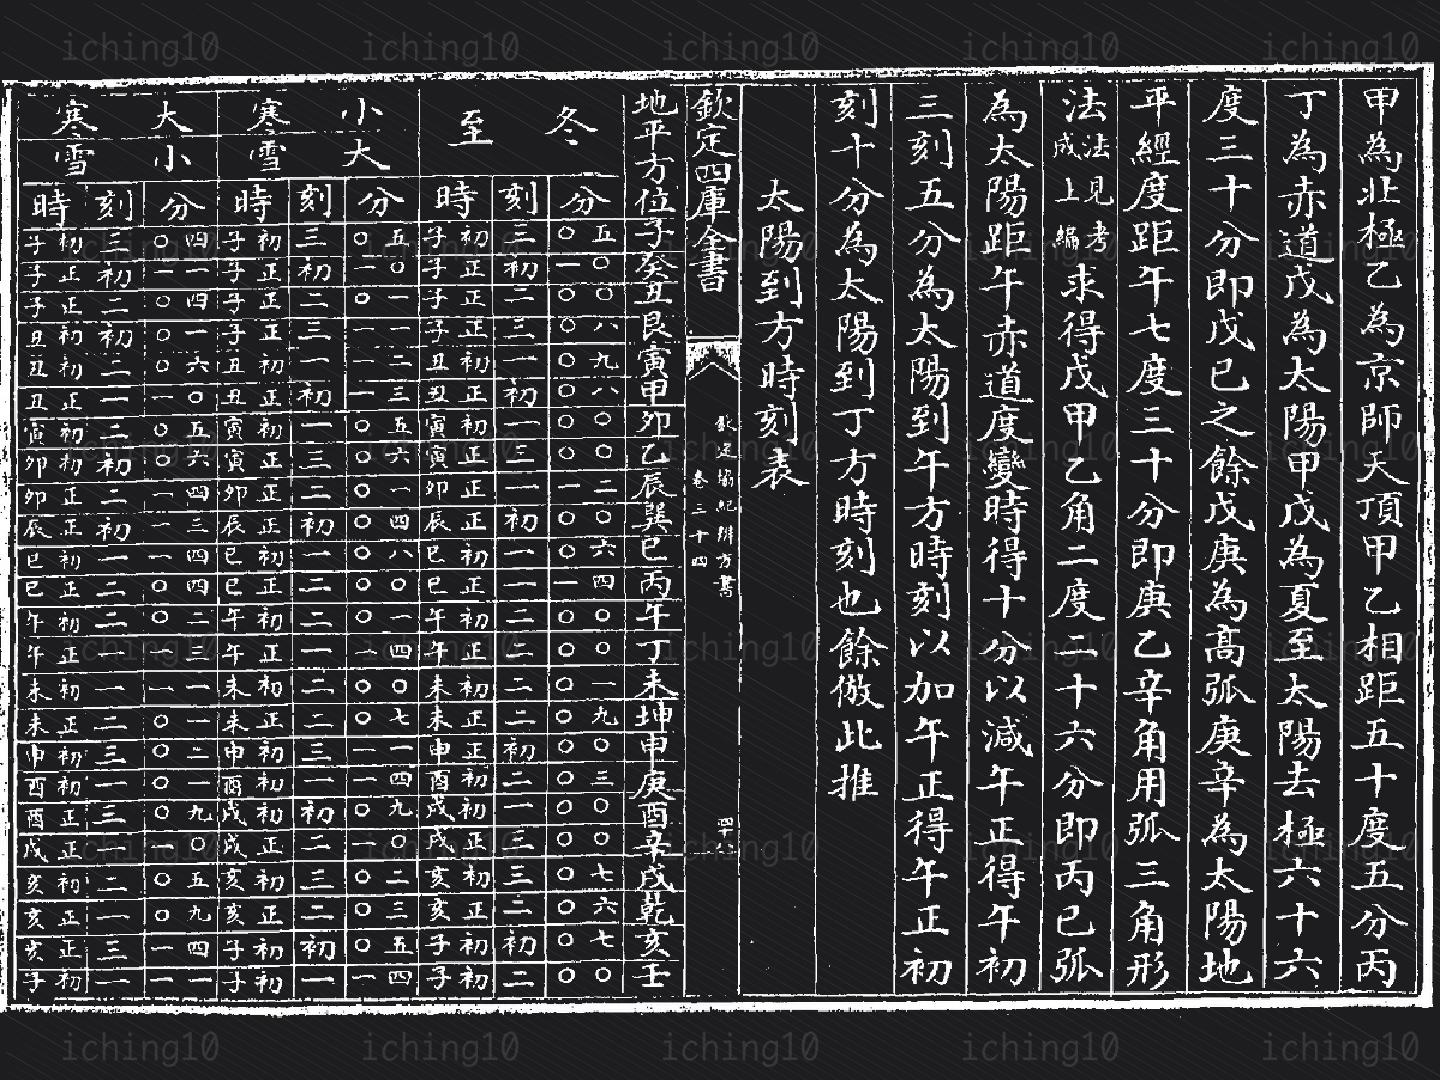 甲為北極乙為京師天頂甲乙相距五十度五分丙
丁為赤道戊為太陽甲戊為夏至太陽去極六十六
度三十分即戊己之餘戊庚為高弧庚辛為太陽地
平經度距午七度三十分即庚乙辛角用弧三角形
法法見考成上編求得戊甲乙角二度二十六分即丙己弧
為太陽距午赤道度變時得十分以減午正得午初
三刻五分為太陽到午方時刻以加午正得午正初
刻十分為太陽到丁方時刻也餘倣此推
太陽到方時刻表
欽定四庫全書
欽定協紀辨方書
卷三十四
四十八
地平方位 冬至 小寒大雪 大寒小雪
時 刻 分 時 刻 分 時 刻 分
子 子初 三 〇五 子初 三 〇五 子初 三 〇四
癸 子正 初 一〇 子正 初 一〇 子正 初 一一
丑 子正 二 〇〇 子正 二 〇一 子正 二 〇四
艮 子正 三 〇八 子正 三 一一 丑初 初 〇一
寅 丑初 一 〇九 丑初 一 一二 丑初 二 〇六
甲 丑正 初 〇八 丑正 初 一三 丑正 一 一〇
卯 寅初 一 〇〇 寅初 一 〇五 寅初 二 〇五
乙 寅正 三 〇〇 寅正 三 〇六 卯初 初 〇六
辰 卯正 一 一二 卯正 二 〇一 卯正 二 一四
巽 辰正 初 〇〇 辰正 初 〇四 辰正 初 一三
巳 巳初 一 〇六 巳初 一 〇八 巳初 一 一四
丙 巳正 一 一四 巳正 二 〇〇 巳正 二 〇四
午 午初 二 〇〇 午初 二 〇一 午初 二 〇二
丁 午正 二 〇〇 午正 一 一四 午正 一 一二
未 未初 二 〇一 未初 二 〇〇 未初 一 一一
坤 未正 二 〇九 未正 二 〇七 未正 二 〇一
申 申正 初 〇〇 申初 三 一一 申初 三 〇二
庚 酉初 二 〇三 酉初 一 一四 酉初 一 〇一
酉 戌初 一 〇〇 戌初 初 〇九 酉正 三 〇九
辛 戌正 三 〇〇 戌正 二 一〇 戌正 一 一〇
戌 亥初 三 〇七 亥初 三 〇二 亥初 二 〇五
乾 亥正 二 〇六 亥正 二 〇三 亥正 一 〇九
亥 子初 初 〇七 子初 初 〇五 亥正 三 一四
壬 子初 二 〇〇 子初 一 一四 子初 一 一一
iching10